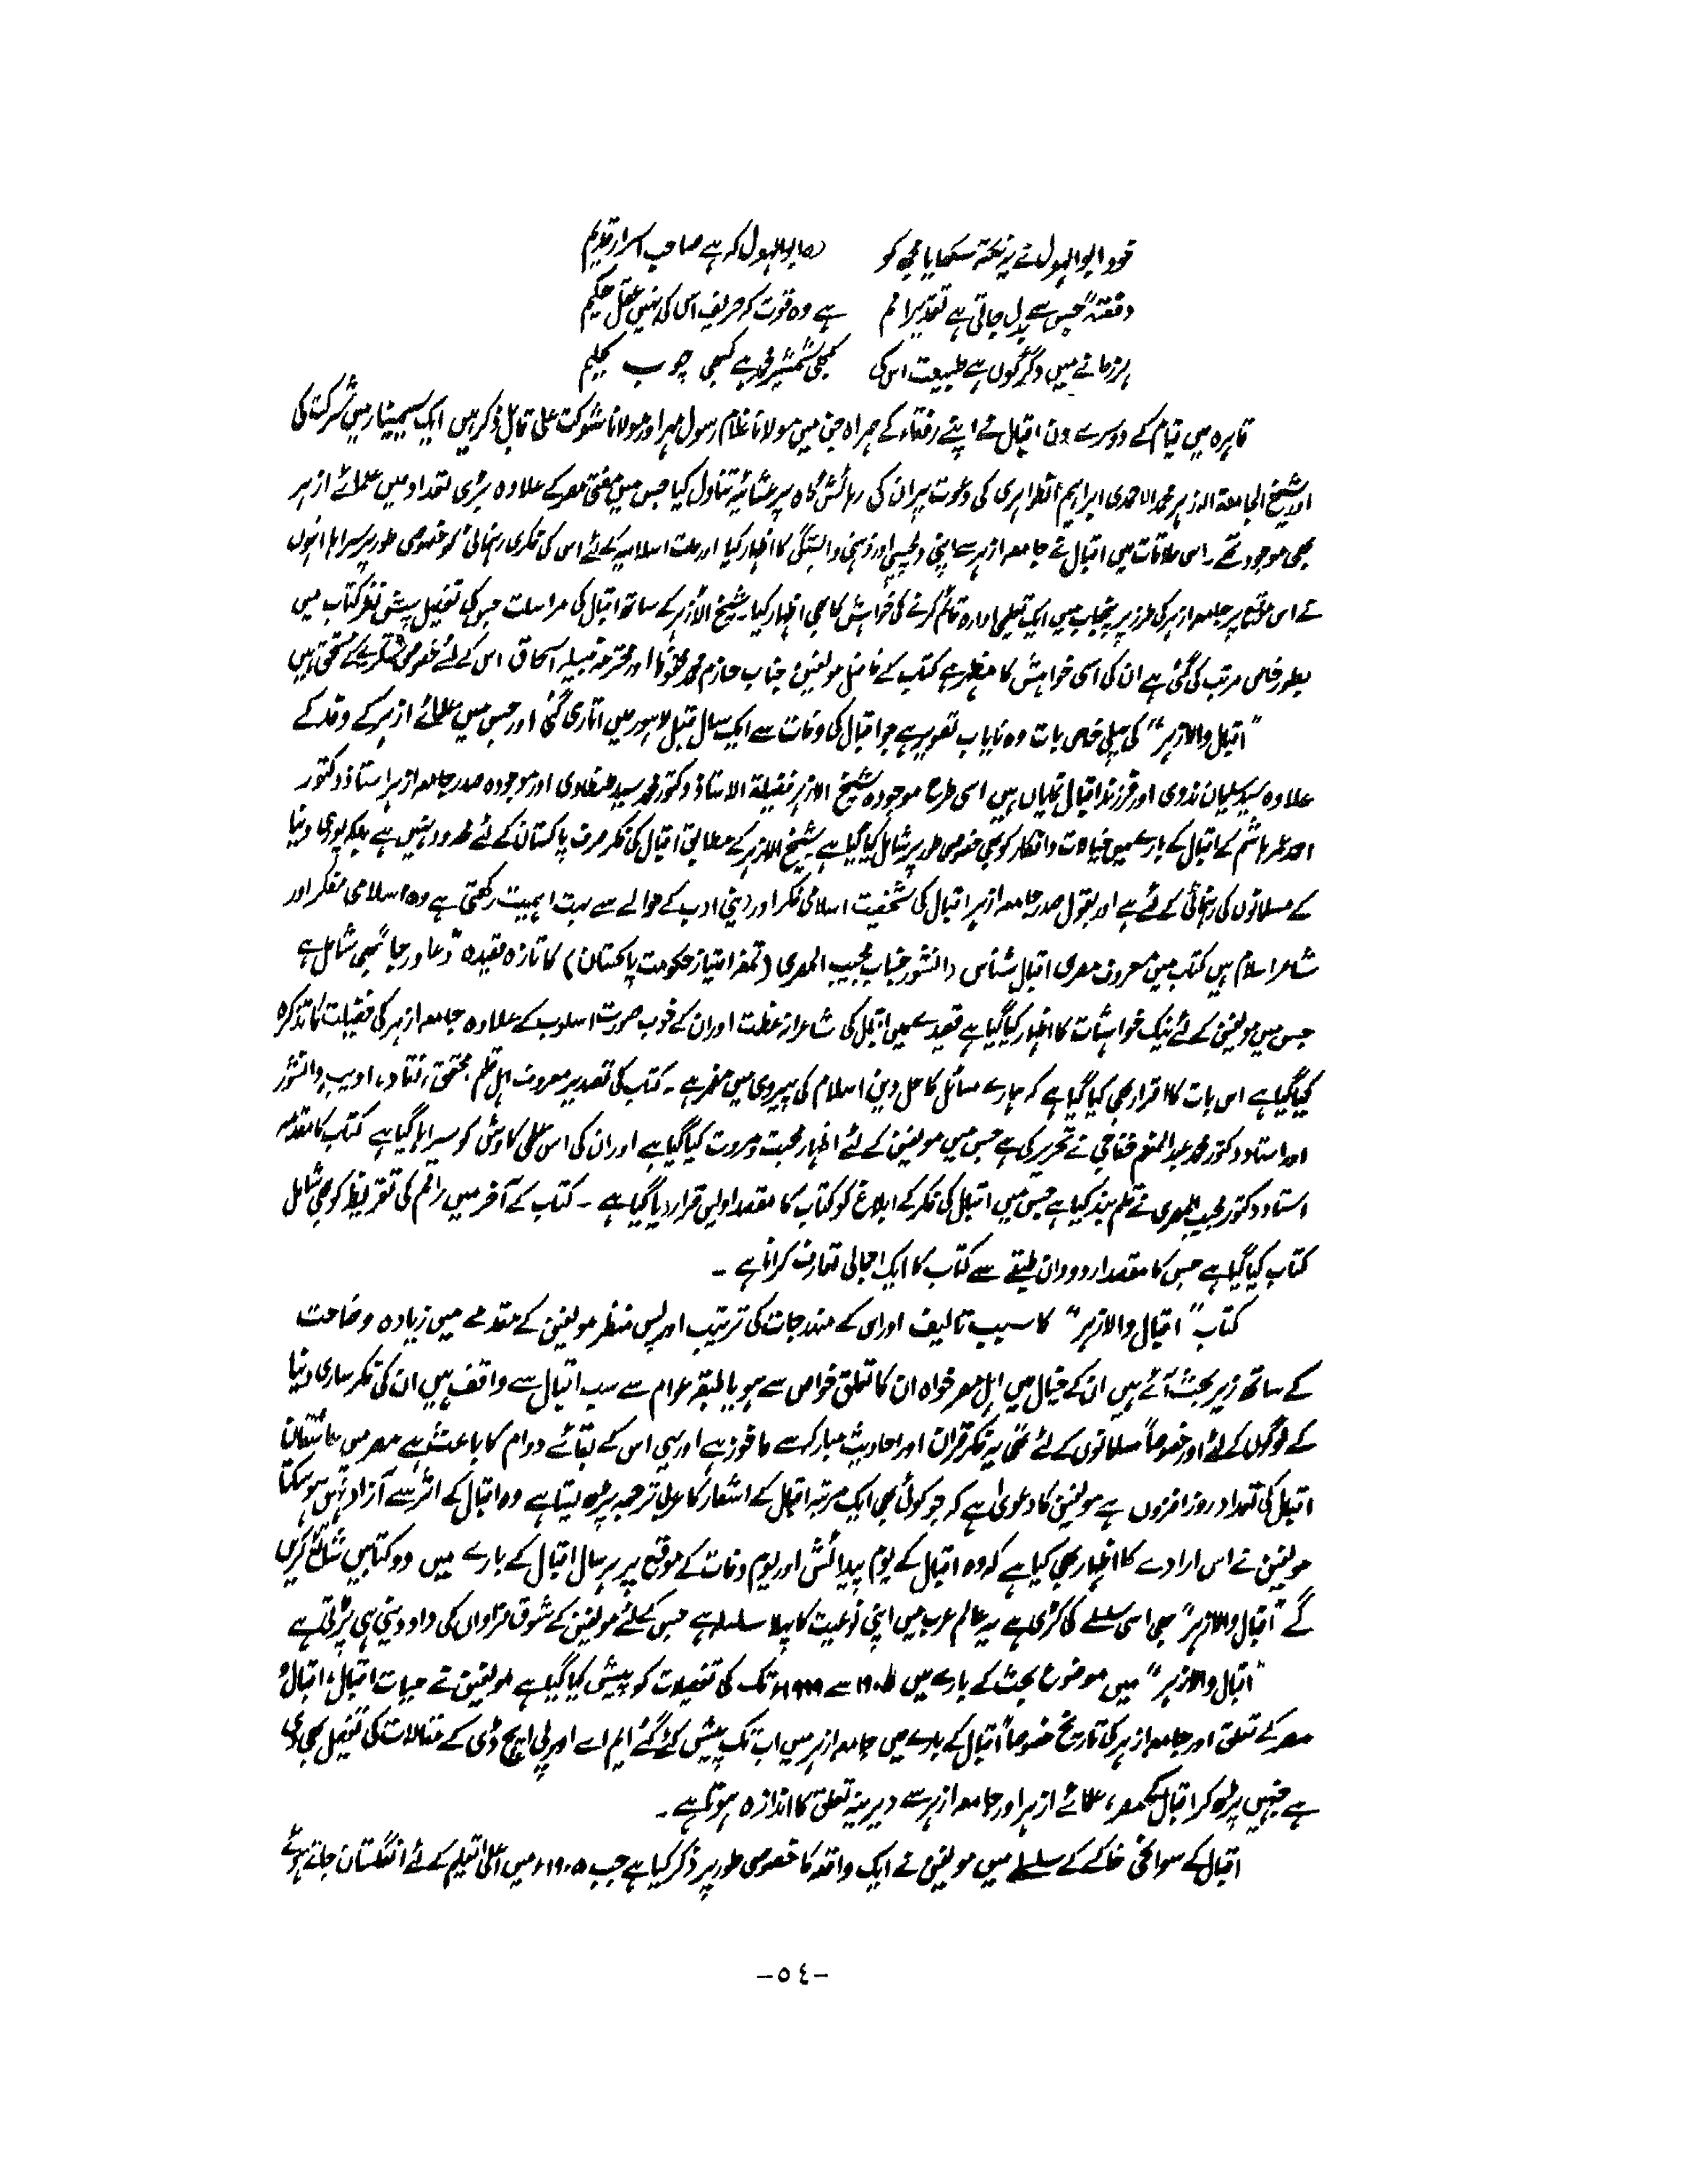 خود ابوالہول نے یہ نکتہ سکھایا مجھ کو وہ ابوالہول کہ ہے صاحب اسرار قدیم
دفعتہً جس سے بدل جاتی ہے تقدیر امم ہے وہ قوت کہ حریف اس کی نہیں عقل حکیم
ہر زمانے میں دگرگوں ہے طبیعت اس کی کبھی شمشیر محمد ہے کبھی چوب کلیم
قاہرہ میں قیام کے دوسرے دن اقبال نے اپنے رفقاء کے ہمراہ جن میں مولانا غلام رسول مہر اور مولانا شوکت علی قابل ذکر ہیں ایک سیمینار میں شرکت کی
اور شیخ الجامعۃ الازہر محمد الاحمدی ابراہیم الظواہری کی دعوت پر ان کی رہائش گاہ پر عشائیہ تناول کیا جس میں مفتی مصر کے علاوہ بڑی تعداد میں علمائے ازہر
بھی موجود تھے ۔ اس ملاقات میں اقبال نے جامعہ ازہر سے اپنی دلچسپی اور ذہنی وابستگی کا اظہار کیا اور ملت اسلامیہ کے لئے اس کی فکری رہنمائی کو خصوصی طور پر سراہا انہوں
نے اس موقع پر جامعہ ازہر کی طرز پر پنجاب میں ایک تعلیمی ادارہ قائم کرنے کی خواہش کا بھی اظہار کیا ۔ شیخ الازہر کے ساتھ اقبال کی مراسلت جس کی تفصیل پیش نظر کتاب میں
بطور خاص مرتب کی گئی ہے ان کی اسی خواہش کا مظہر ہے کتاب کے فاضل مولفین جناب حازم محمد محفوظ اور محترمہ نبیلہ اسحاق اس کے لئے خصوصی شکریے کے مستحق ہیں
"اقبال والازہر" کی پہلی خاص بات وہ نایاب تصویر ہے جو اقبال کی وفات سے ایک سال قبل لاہور میں اتاری گئی اور جس میں علمائے ازہر کے وفد کے
علاوہ سید سلیمان ندوی اور فرزند اقبال نمایاں ہیں اسی طرح موجودہ شیخ الازہر فضیلۃ الاستاذ دکتور محمد سید طنطاوی اور موجودہ صدر جامعہ ازہر استاذ دکتور
احمد عمر ہاشم کے اقبال کے بارے میں خیالات و افکار کو بھی خصوصی طور پر شامل کیا گیا ہے ۔ شیخ الازہر کے مطابق اقبال کی فکر صرف پاکستان کے لئے محدود نہیں ہے بلکہ پوری دنیا
کے مسلمانوں کی رہنمائی کے لئے ہے اور بقول صدر جامعہ ازہر اقبال کی شخصیت اسلامی فکر اور دینی ادب کے حوالے سے بہت اہمیت رکھتی ہے وہ اسلامی مفکر اور
شاعر اسلام ہیں کتاب میں معروف مصری اقبال شناس دانشور جناب مجیب المصری (تمغہ امتیاز حکومت پاکستان) کا تازہ قصیدہ "دعا ورجا" بھی شامل ہے
جس میں مولفین کے لئے نیک خواہشات کا اظہار کیا گیا ہے قصیدے میں اقبال کی شاعرانہ عظمت اور ان کے خوب صورت اسلوب کے علاوہ جامعہ ازہر کی فضیلت کا تذکرہ
کیا گیا ہے اس بات کا اقرار بھی کیا گیا ہے کہ ہمارے مسائل کا حل دین اسلام کی پیروی میں مضمر ہے ۔ کتاب کی تصدیر معروف اہل قلم، محقق، نقاد، ادیب، دانشور
اور استاد دکتور محمد عبدالمنعم خفاجی نے تحریر کی ہے جس میں مولفین کے لئے اظہار محبت و مروت کیا گیا ہے اور ان کی اس علمی کاوش کو سراہا گیا ہے کتاب کا مقدمہ
استاد دکتور مجیب المصری نے قلم بند کیا ہے جس میں اقبال کی فکر کے ابلاغ کو کتاب کا مقصد اولیں قرار دیا گیا ہے ۔ کتاب کے آخر میں راقم کی تقریظ کو بھی شامل
کتاب کیا گیا ہے جس کا مقصد اردو دان طبقے سے کتاب کا ایک اجمالی تعارف کرانا ہے ۔
کتاب "اقبال والازہر" کا سبب تالیف اور اس کے مندرجات کی ترتیب اور پس منظر مولفین کے مقدمے میں زیادہ وضاحت
کے ساتھ زیر بحث آئے ہیں ان کے خیال میں اہل مصر خواہ ان کا تعلق خواص سے ہو یا طبقہ عوام سے سب اقبال سے واقف ہیں ان کی فکر ساری دنیا
کے لوگوں کے لئے اور خصوصاً مسلمانوں کے لئے تھی یہ فکر قرآن اور احادیث مبارکہ سے ماخوذ ہے اور یہی اس کے بقائے دوام کا باعث ہے مصر میں عاشقان
اقبال کی تعداد روز افزوں ہے مولفین کا دعویٰ ہے کہ جو کوئی بھی ایک مرتبہ اقبال کے اشعار کا عربی ترجمہ پڑھ لیتا ہے وہ اقبال کے اثر سے آزاد نہیں ہو سکتا
مولفین نے اس ارادے کا اظہار بھی کیا ہے کہ وہ اقبال کے یوم پیدائش اور یوم وفات کے موقع پر ہر سال اقبال کے بارے میں دو کتابیں شائع کریں
گے "اقبال والازہر" بھی اسی سلسلے کی کڑی ہے یہ عالم عرب میں اپنی نوعیت کا پہلا سلسلہ ہے جس کے لئے مولفین کے شوق فراواں کی داد دینی ہی پڑتی ہے
"اقبال والازہر" میں موضوع بحث کے بارے میں سے تک کی تفصیلات کو پیش کیا گیا ہے مولفین نے حیات اقبال، اقبال و
مصر کے تعلق اور جامعہ ازہر کی تاریخ خصوصاً اقبال کے بارے میں جامعہ ازہر میں اب تک پیش کئے گئے ایم اے اور پی ایچ ڈی کے مقالات کی تفصیل بھی دی
ہے جنہیں پڑھ کر اقبال کے مصر، علمائے ازہر اور جامعہ ازہر سے دیرینہ تعلق کا اندازہ ہوتا ہے ۔
اقبال کے سوانحی خاکے کے سلسلے میں مولفین نے ایک واقعہ کا خصوصی طور پر ذکر کیا ہے جب ۱۹۰۵ء میں اعلیٰ تعلیم کے لئے انگلستان جاتے ہوئے
-٥٤-